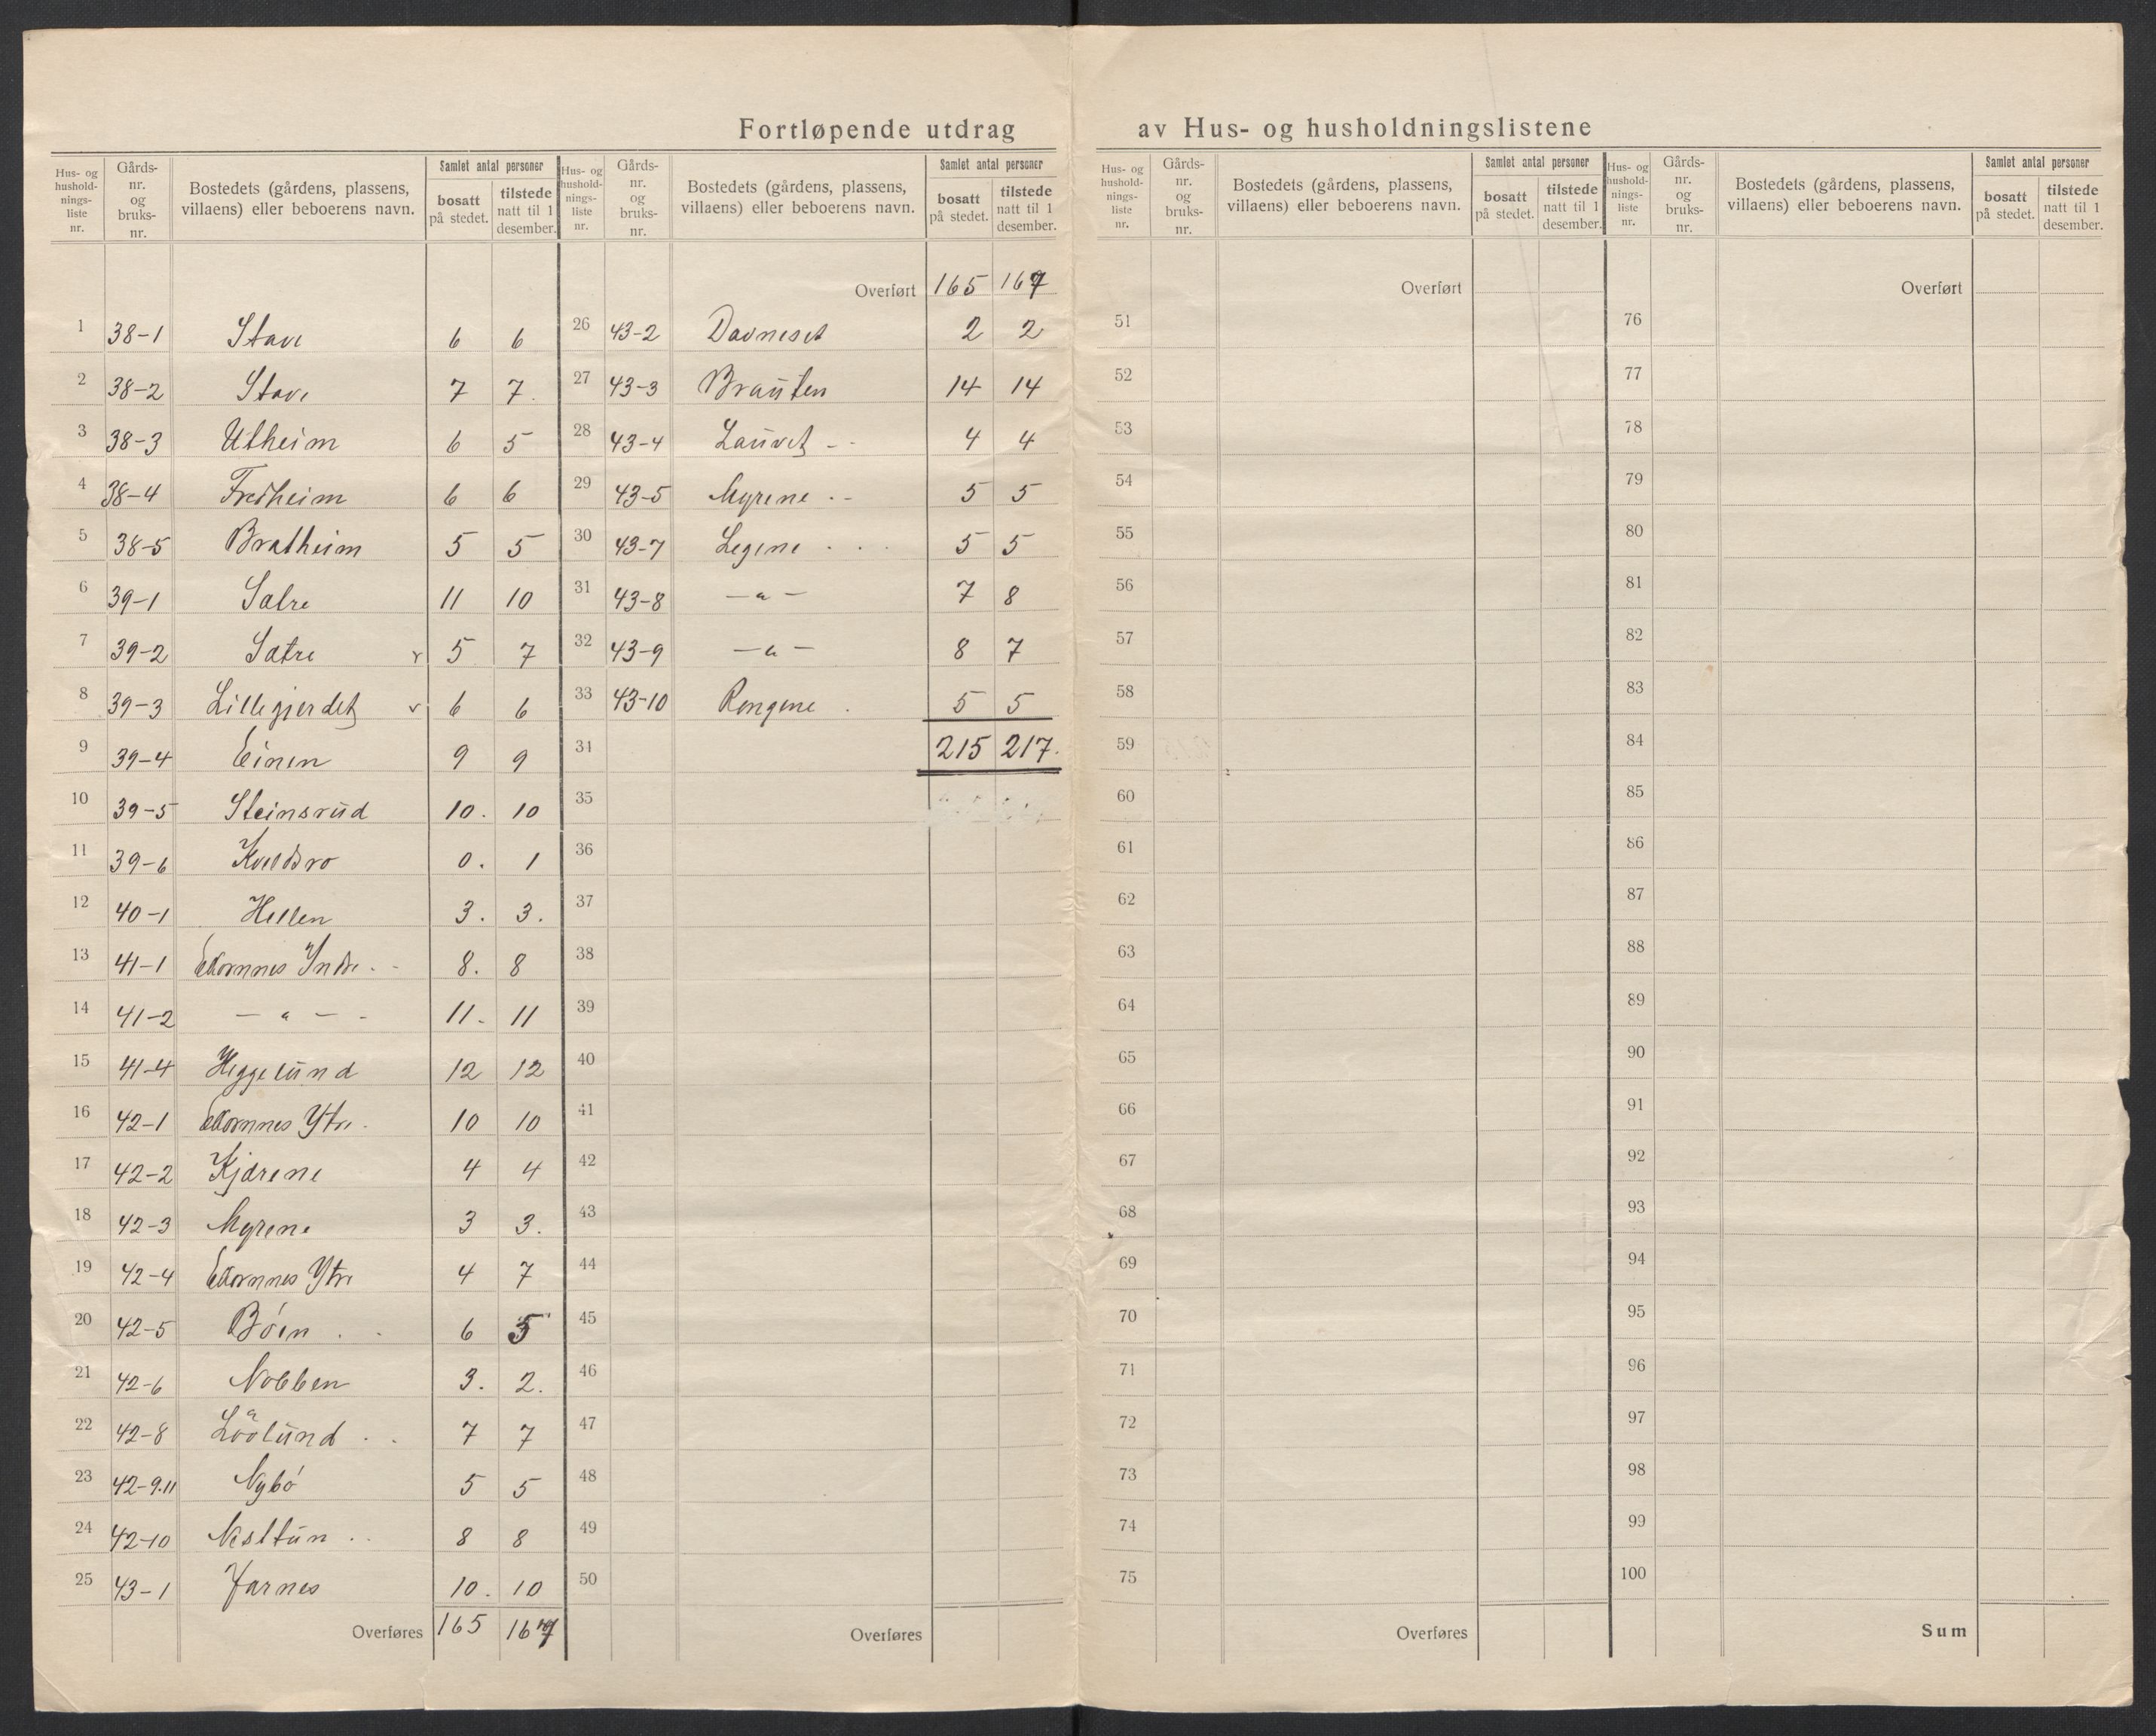 Fortløpende utdrag av Hus- og husholdningslistene
Hus- og hushold- nings- liste nr. | Gårds- nr. og bruks- nr. | Bostedets (gårdens, plassens, villaens) eller beboerens navn. | Samlet antal personer | bosatt på stedet. | tilstede natt til 1 desember.
1 38-1 Stave 6 6
2 38-2 Stave 7 7.
3 38-3 Utheim 6 5
4 38-4 Fredheim 6 6
5 38-5 Bratheim 5 5
6 39-1 Satre 11 10
7 39-2 Satre v 5 7
8 39-3 Lillegjerdet v 6 6
9 39-4 Einen 9 9
10 39-5 Steinsrud 10. 10
11 39-6 Kveldsro 0. 1
12 40-1 Hellen 3. 3.
13 41-1 Ekornnes Indre 8. 8
14 41-2 — " — - 11. 11
15 41-4 Heggelund 12 12
16 42-1 Ekornnes Ytre 10 10
17 42-2 Kjærene 4 4
18 42-3 Myrene 3 3.
19 42-4 Ekornnes Ytre 4 7
20 42-5 Böen . . 6 5
21 42-6 Nobben 3. 2.
22 42-8 7 7
23 42-9.11 Nybö 5 5
24 42-10 Nesttun . . 8 8
25 43-1 Jarnes 10. 10
Overføres 165 167
Hus- og hushold- nings- liste nr. | Gårds- nr. og bruks- nr. | Bostedets (gårdens, plassens, villaens) eller beboerens navn. | Samlet antal personer | bosatt på stedet. | tilstede natt til 1 desember.
Overført 165 167
26 43-2 Davneset 2 2
27 43-3 Brauten 14 14
28 43-4 Lauvet - - 4 4
29 43-5 Myrene . - 5 5
30 43-7 Legene . . . 5 5
31 43-8 — " — 7 8
32 43-9 — " — 8 7
33 43-10 Rongene . 5 5
34 215 217.
35
36
37
38
39
40
41
42
43
44
45
46
47
48
49
50
Overføres
Hus- og hushold- nings- liste nr. | Gårds- nr. og bruks- nr. | Bostedets (gårdens, plassens, villaens) eller beboerens navn. | Samlet antal personer | bosatt på stedet. | tilstede natt til 1 desember.
Overført
51
52
53
54
55
56
57
58
59
60
61
62
63
64
65
66
67
68
69
70
71
72
73
74
75
Overføres
Hus- og hushold- nings- liste nr. | Gårds- nr. og bruks- nr. | Bostedets (gårdens, plassens, villaens) eller beboerens navn. | Samlet antal personer | bosatt på stedet. | tilstede natt til 1 desember.
Overført
76
77
78
79
80
81
82
83
84
85
86
87
88
89
90
91
92
93
94
95
96
97
98
99
100
Sum